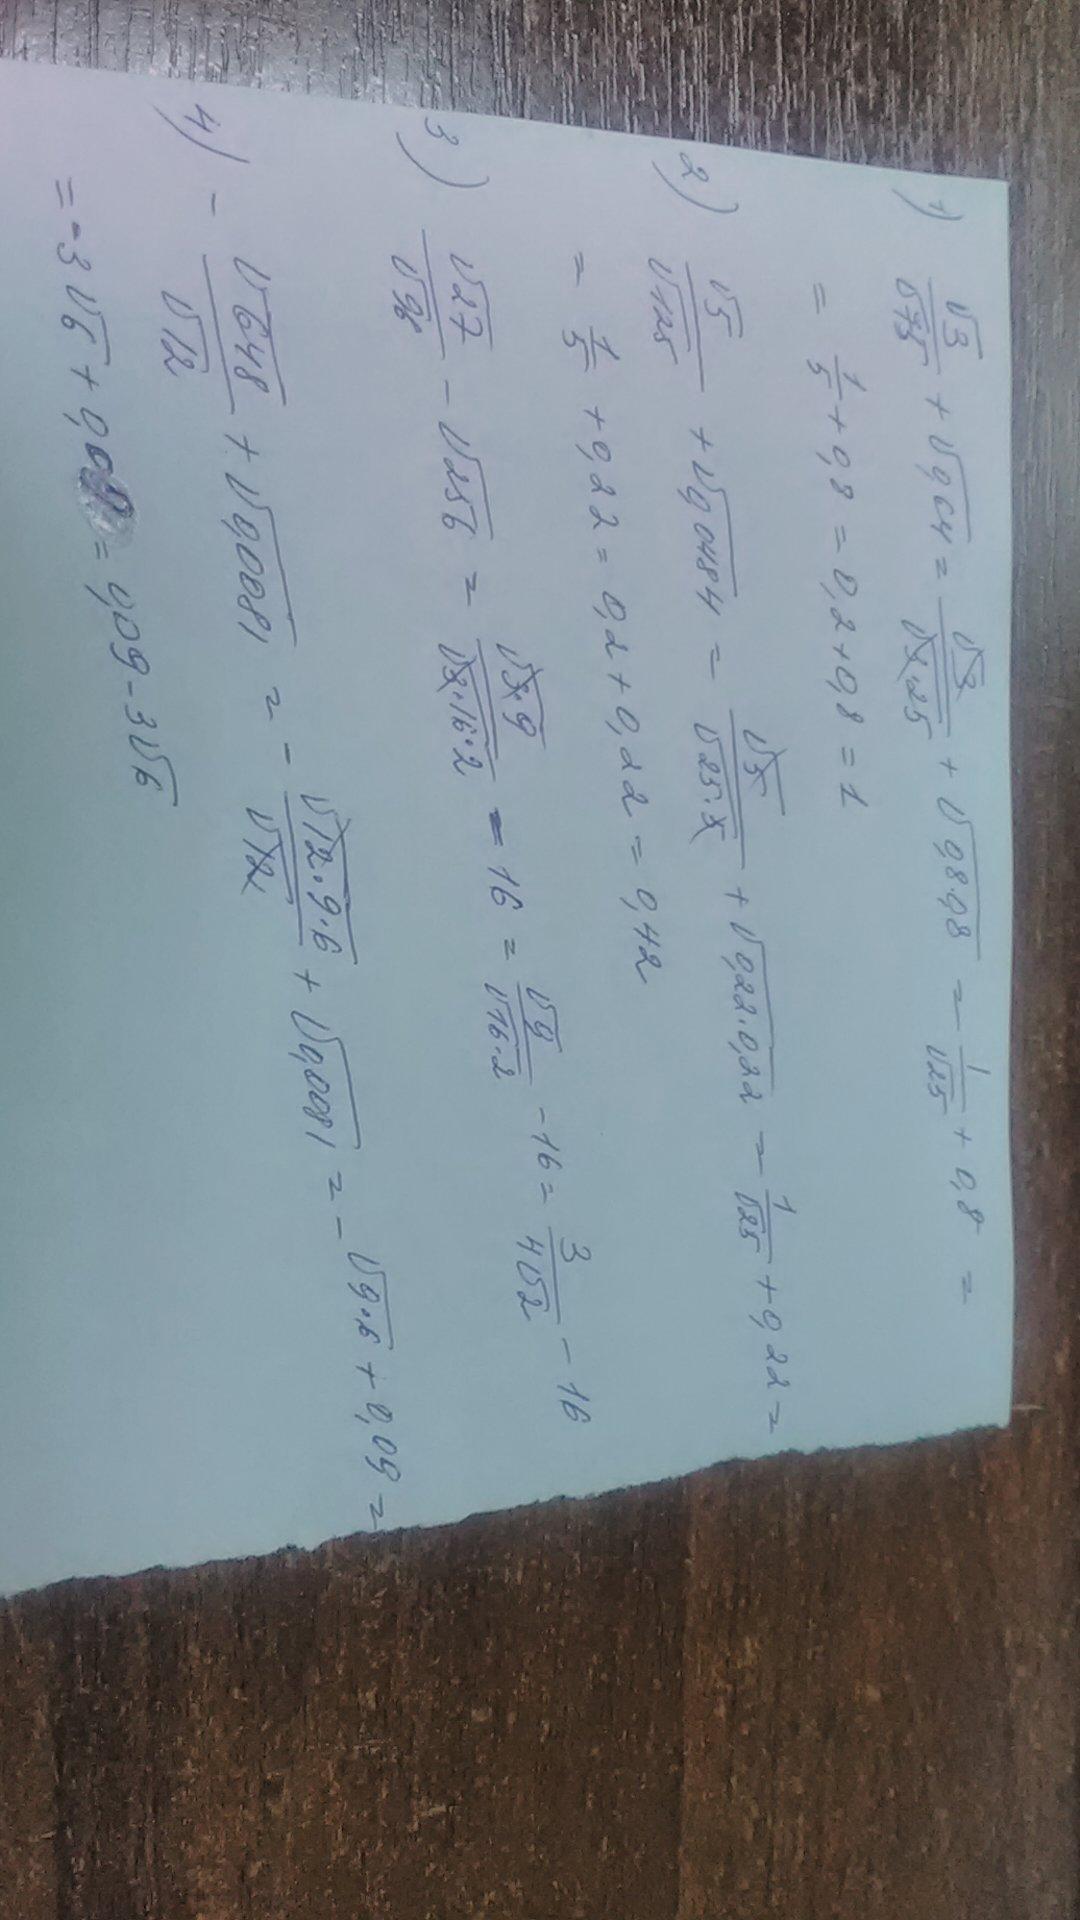 1) √3/√75 + √0,64 = √3/√3·25 + √0,8·0,8 = 1/√25 + 0,8 =
= 1/5 + 0,8 = 0,2+0,8 = 1
2) √5/√125 + √0,0484 = √5/√25·5 + √0,22·0,22 = 1/√25 + 0,22 =
= 1/5 + 0,22 = 0,2 + 0,22 = 0,42
3) √27/√96 - √256 = √3·9/√3·16·2 = 16 = √9/√16·2 - 16 = 3/4√2 - 16
4) - √648/√12 + √0,0081 = - √12·9·6/√12 + √0,0081 = - √9·6 + 0,09 =
= -3√6 + 0,09 = 0,09 - 3√6